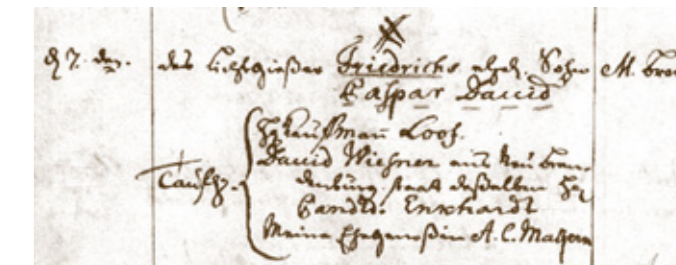 d 7. den.
des Lichtgießer Friedrichs ehel. Sohn
Caspar David
H Kauffman Loof.
David Wiesner aus Neubran
Taufz. denburg statt deßelben H
Candid. Enckhardt
Meine Ehegenoßin A. C.